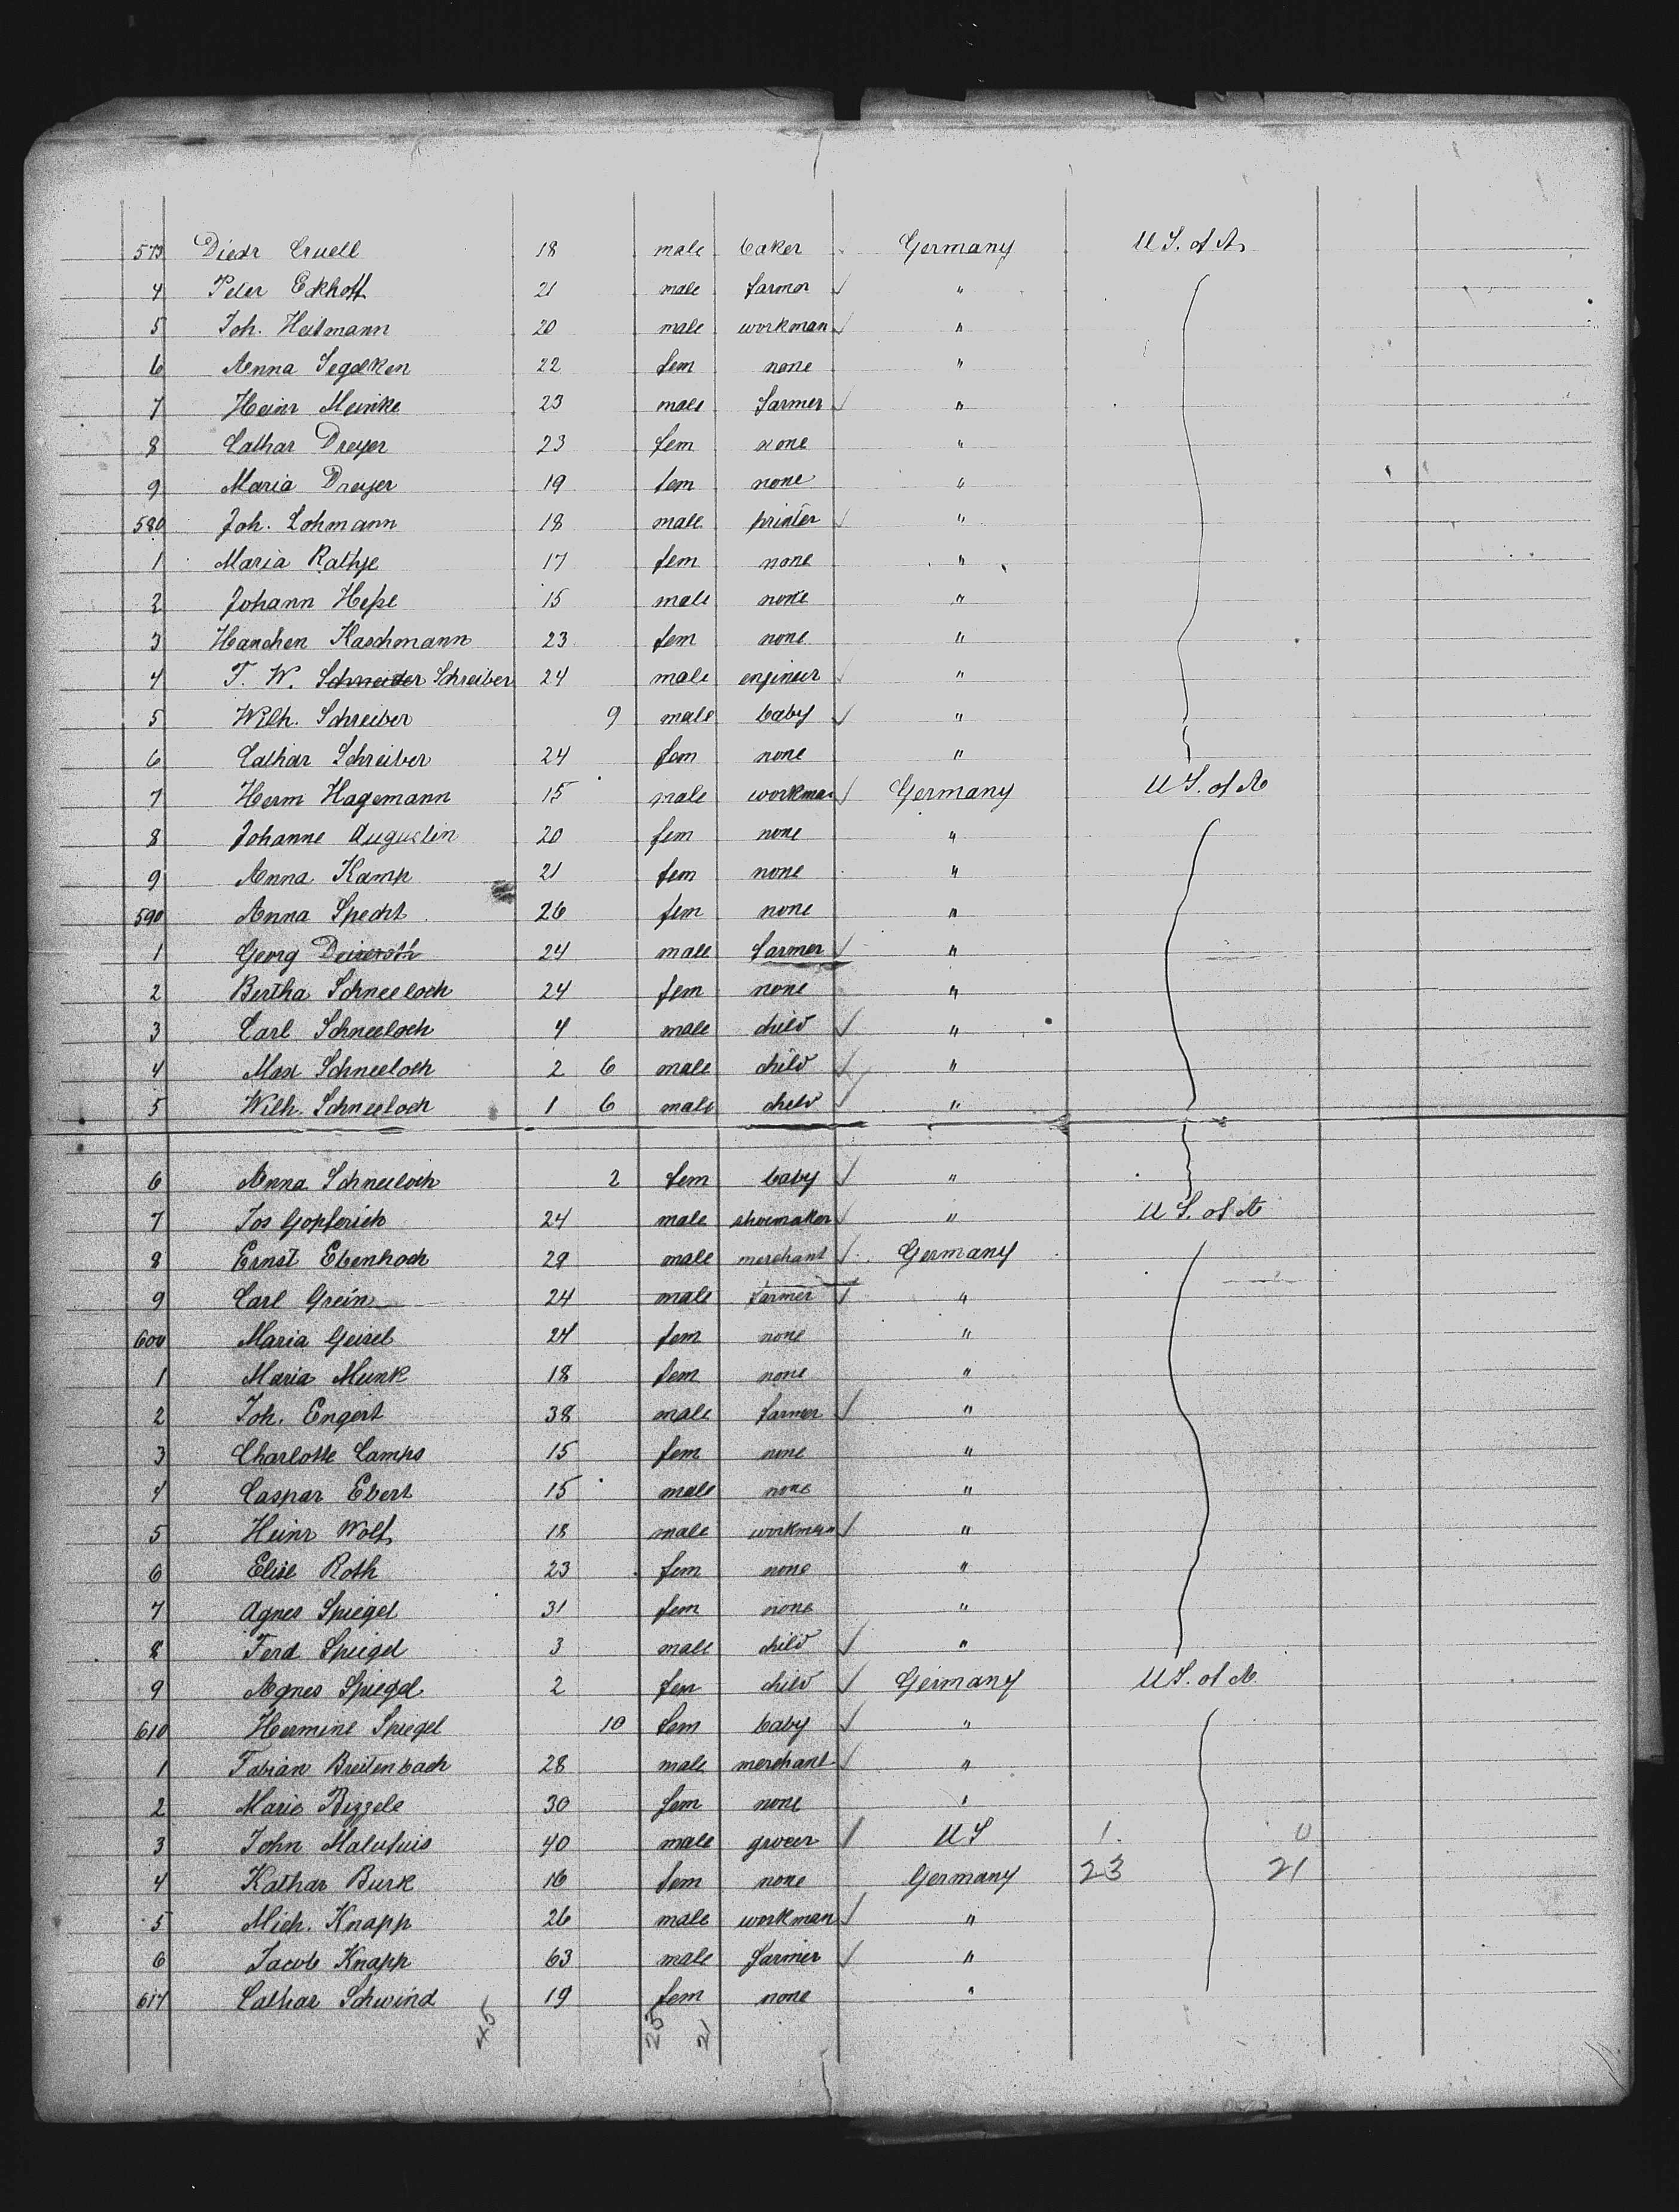 573 Diedr Cruell 18 male baker Germany U S. of A.
4 Peter Eckhoff 21 male farmer ✓ "
5 Joh. Heitmann 20 male workman ✓ "
6 Anna Segelken 22 fem none "
7 Heinr Meinke 23 male farmer ✓ "
8 Cathar Dreyer 23 fem none "
9 Maria Dreyer 19 fem none "
580 Joh. Lohmann 18 male printer ✓ "
1 Maria Rathje 17 fem none "
2 Johann Heße 15 male none "
3 Hanchen Kaschmann 23 fem none "
4 F. W. Schneider Schreiber 24 male engineer ✓ "
5 Wilh. Schreiber 9 male baby ✓ "
6 Cathar Schreiber 24 fem none "
7 Herm Hagemann 15 male workman ✓ Germany U S. of A
8 Johanne Augustin 20 fem none "
9 Anna Kamp 21 fem none "
590 Anna Specht 26 fem none "
1 Georg Deiseroth 24 male farmer ✓ "
2 Bertha Schneeloch 24 fem none "
3 Carl Schneeloch 4 male child ✓ "
4 Max Schneeloch 2 6 male child ✓ "
5 Wilh. Schneeloch 1 6 male child ✓ "
6 Anna Schneeloch 2 fem baby ✓ "
7 Jos Gopferich 24 male shoemaker ✓ " U S. of A
8 Ernst Ebenhoch 29 male merchant ✓ Germany
9 Carl Grein 24 male farmer ✓ "
600 Maria Geisel 24 fem none "
1 Maria Munk 18 fem none "
2 Joh. Engert 38 male farmer ✓ "
3 Charlotte Camps 15 fem none "
4 Caspar Ebert 15 male none "
5 Heinr Wolf 18 male workman ✓ "
6 Elise Roth 23 fem none "
7 Agnes Spiegel 31 fem none "
8 Ferd Spiegel 3 male child ✓ "
9 Agnes Spiegel 2 fem child ✓ Germany U S. of A.
610 Hermine Spiegel 10 fem baby ✓ "
1 Fabian Breitenbach 28 male merchant ✓ "
2 Marie 30 fem none "
3 John 40 male grocer ✓ U S 1. 0
4 Kathar Burk 16 fem none Germany 23 21
5 Mich. Knapp 26 male workman ✓ "
6 Jacob Knapp 63 male farmer ✓ "
617 Cathar Schwind 19 fem none "
45 25 21